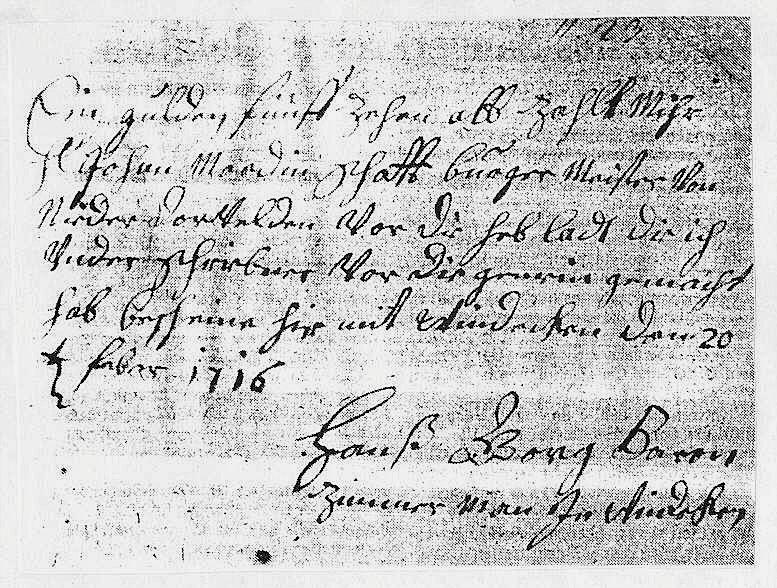 N 23
Ein gulden funff zehen alb zahlt Mihr
H Johan Mardin Schaff burger Meister Von
Nieder dorVelden Vor die heb ladt die ich
Vnder schribner Vor die gemein gemacht
hab bescheine hir mit Windecken den 20
feber 1716
Hanß Georg Baron
Zimmer Man In Windecken